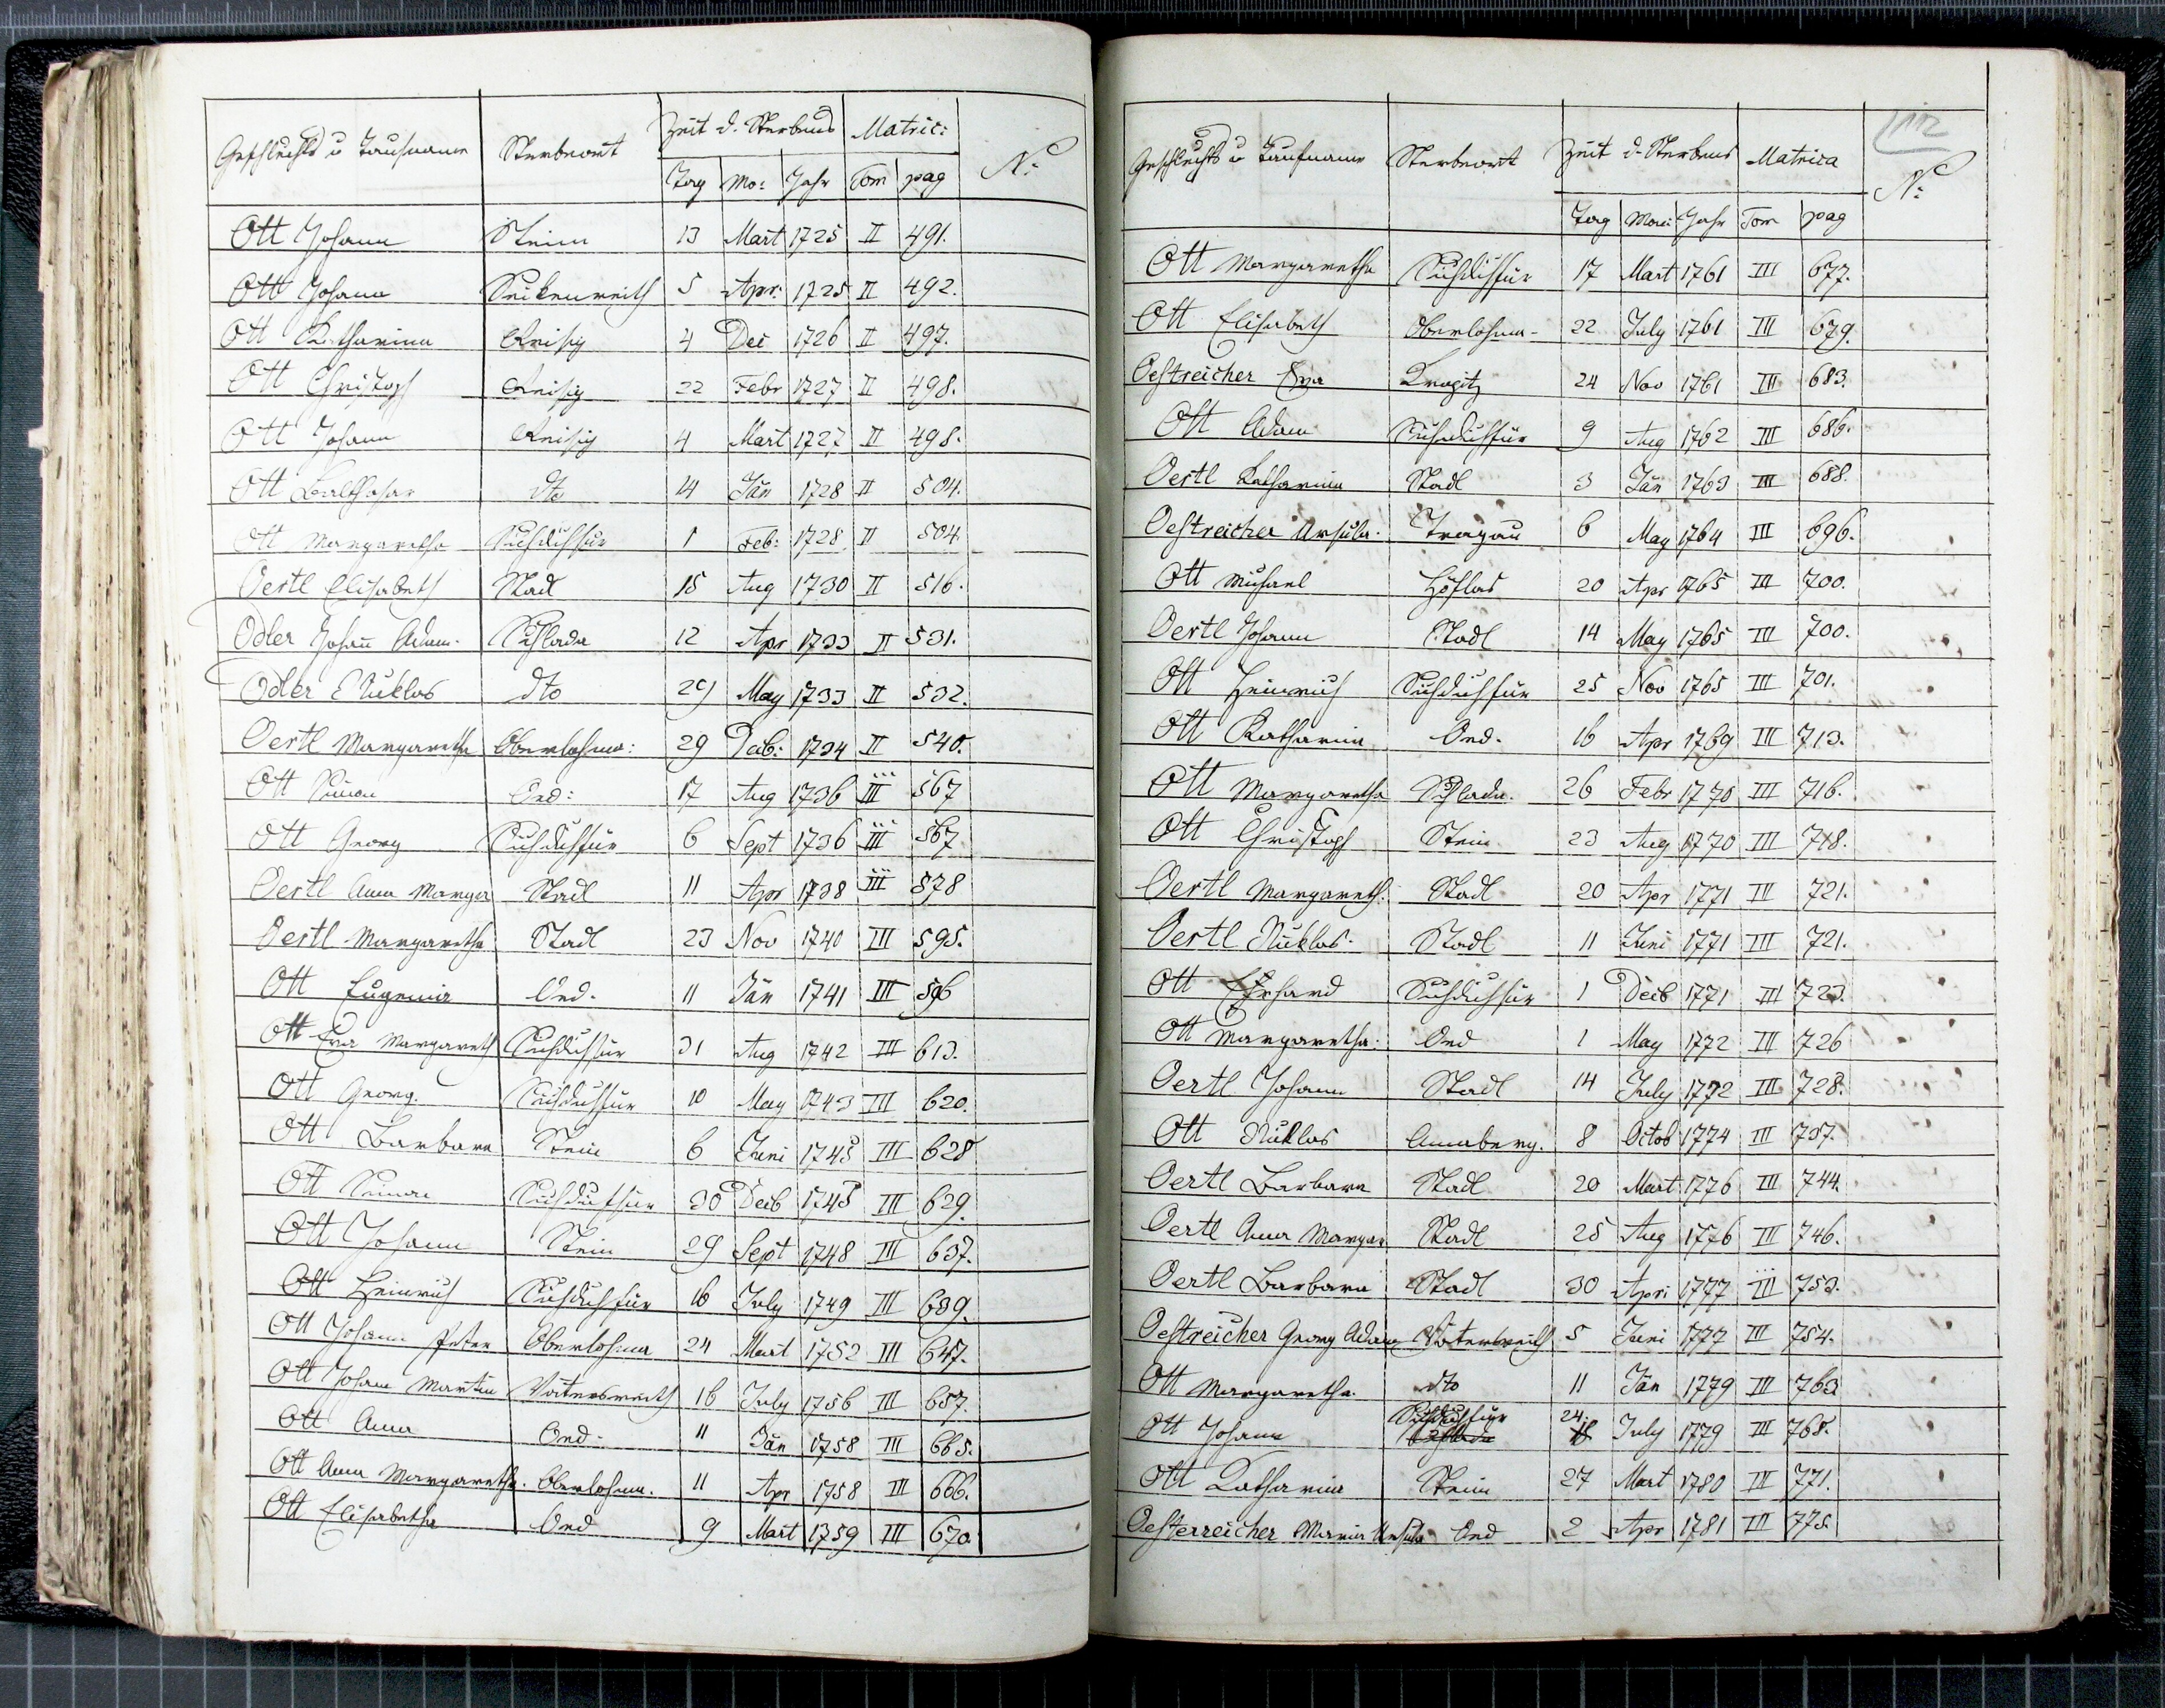 Geschlechts u Taufname Sterbeort Zeit d. Sterbens Matric: N:
Tag Mo: Jahr Tom pag
Ott Johann Stein 13 Mart 1725 II 491.
Ott Johann Seikenreith 5 Apr: 1725 II 492.
Ott Katharina Reißig 4 Dec 1726 II 497.
Ott Christoph Reißig 22 Febr 1727 II 498.
Ott Johann Reißig 4 Mart 1727 II 498.
Ott Balthasar dto 14 Jän 1728 II 504.
Ott Margaretha 1 Feb: 1728 II 504.
Oertl Elisabeth Stadl 15 Aug 1730 II 516.
Odler Johann Adam. Schlada 12 Apr 1733 II 531.
Odler Niklas dto 29 May 1733 II 532.
Oertl Margaretha Oberlohma: 29 Decb: 1734 II 540.
Ott Simon Oed: 17 Aug 1736 III 567
Ott Georg 6 Sept 1736 III 567
Oertl Anna Marga Stadl 11 Apr 1738 III 578
Oertl Margaretha Stadl 23 Nov 1740 III 595.
Ott Eugenia Oed. 11 Jän 1741 III 596
Ott Eva Margareth 31 Aug 1742 III 613.
Ott Georg. 10 May 1743 III 620.
Ott Barbara Stein 6 Juni 1745 III 628
Ott Simon 30 Decb 1745 III 629.
Ott Johann Stein 29 Sept 1748 III 637.
Ott Heinrich 16 July 1749 III 639.
Ott Johann Peter Oberlohma 24 Mart 1752 III 647.
Ott Johann Martin Voitersreith 16 July 1756 III 657.
Ott Anna Oed. 11 Jän 1758 III 665.
Ott Anna Margaretha. Oberlohma. 11 Apr 1758 III 666.
Ott Elisabetha Oed 9 Mart 1759 III 670.
112
Geschlechts u Taufname Sterbeort Zeit d. Sterbens Matrica N:
Tag Mon: Jahr Tom pag
Ott Margaretha 17 Mart 1761 III 677.
Ott Elisabeth Oberlohma- 22 July 1761 III 679.
Oestreicher Eva Kropitz 24 Nov 1761 III 683.
Ott Adam 9 Aug 1762 III 686.
Oertl Katharina Stadl 3 Jän 1763 III 688.
Oestreicher Ursula. Tragau 6 May 1764 III 696.
Ott Michael Höflas 20 Apr 1765 III 700.
Oertl Johann Stadl 14 May 1765 III 700.
Ott Heinrich 25 Nov 1765 III 701.
Ott Katharina Oed. 16 Apr 1769 III 713.
Ott Margaretha Schlada. 26 Febr 1770 III 716.
Ott Christoph Stein 23 Aug 1770 III 718.
Oertl Margareth. Stadl 20 Apr 1771 III 721.
Oertl Niklas. Stadl 11 Juni 1771 III 721.
Ott Erhard 1 Decb 1771 III 723.
Ott Margaretha. Oed 1 May 1772 III 726
Oertl Johann Stadl 14 July 1772 III 728.
Ott Niklas Annaberg. 8 Octob 1774 III 737.
Oertl Barbara Stadl 20 Mart 1776 III 744.
Oertl Anna Margar Stadl 25 Aug 1776 III 746.
Oertl Barbara Stadl 30 Apri 1777 III 753.
Oestreicher Georg Adam Voitersreith 5 Juni 1777 III 754.
Ott Margaretha. dto 11 Jän 1779 III 763
Ott Johann 24. July 1779 III 768.
Ott Katharina Stein 27 Mart 1780 III 771.
Oesterreicher Maria Ursula Oed 2 Apr 1781 III 775.